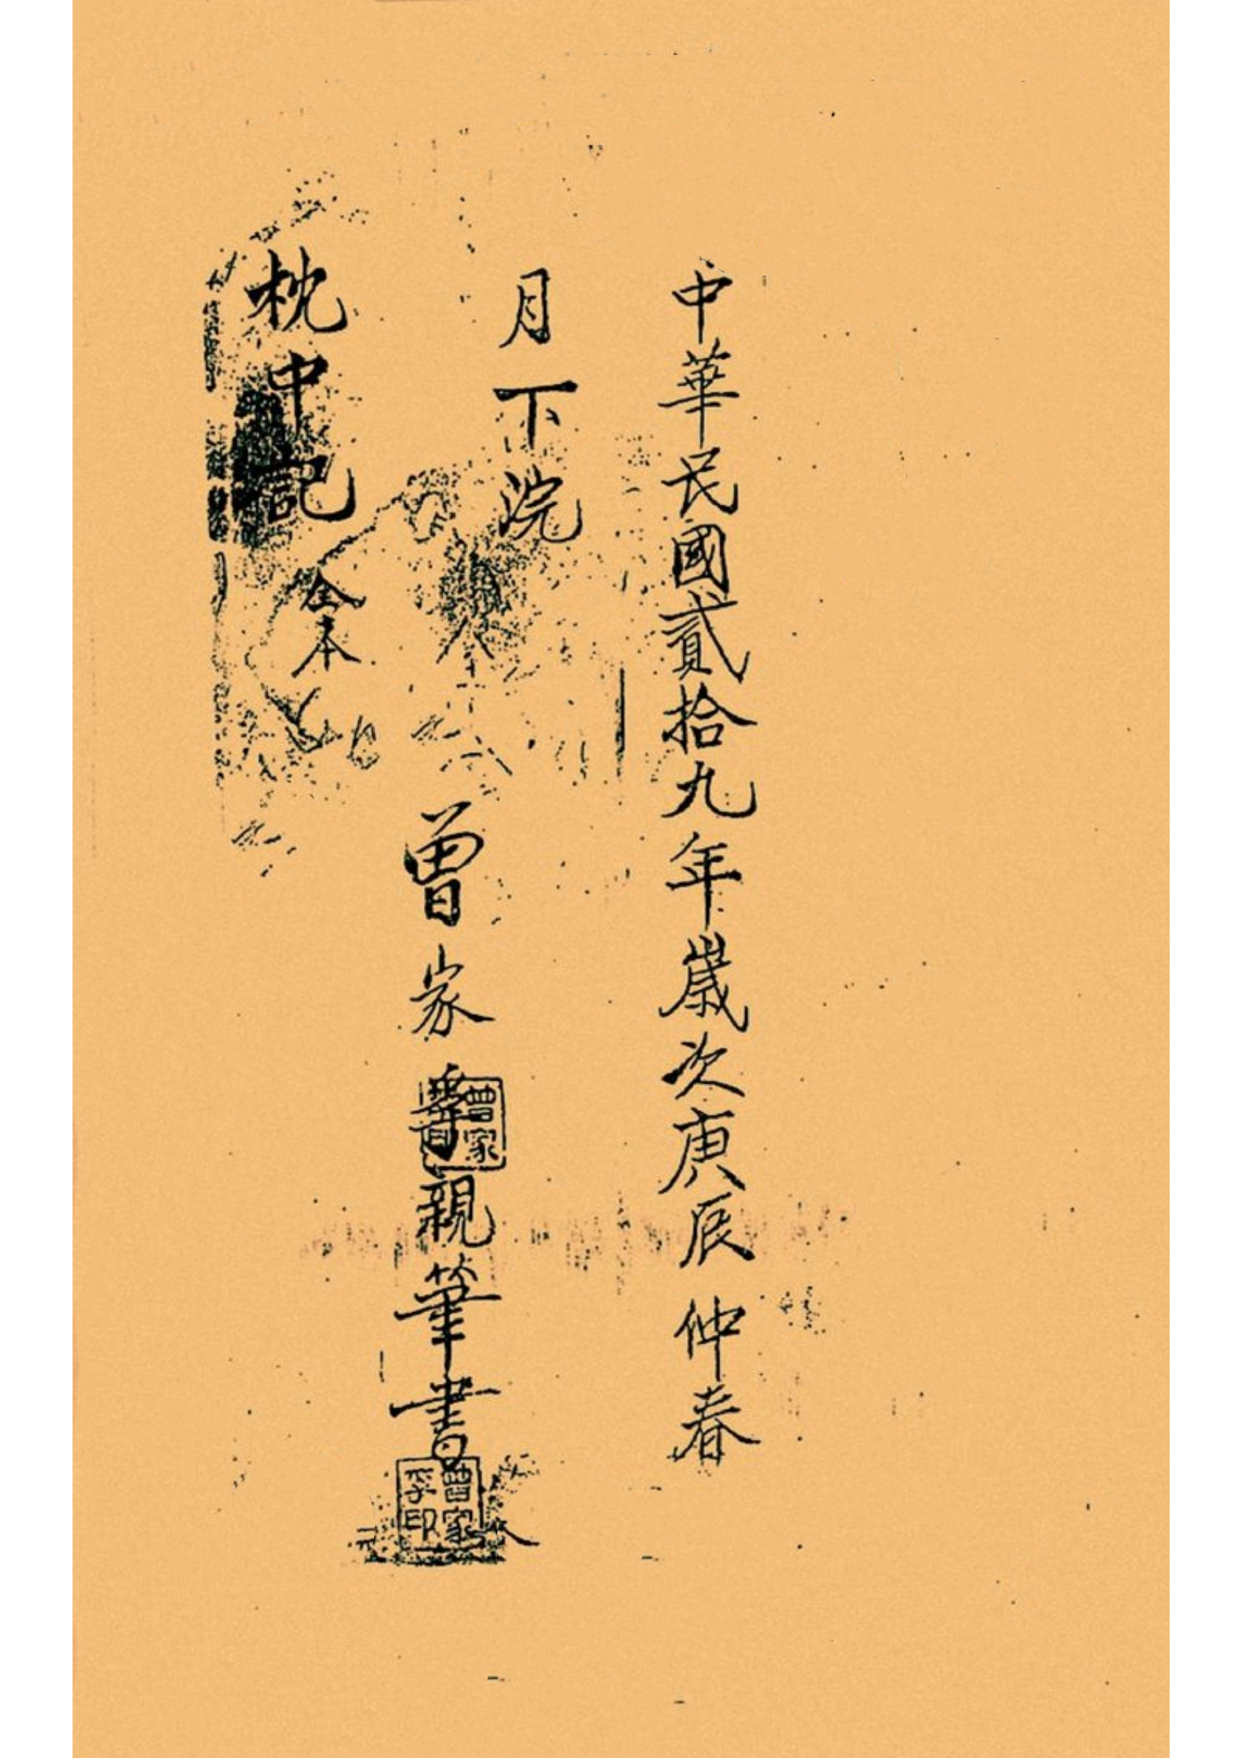 中華民國貳拾九年歲次庚辰仲春
月下浣
曾家親筆書
曾家
曾家孚印
枕中記
全本